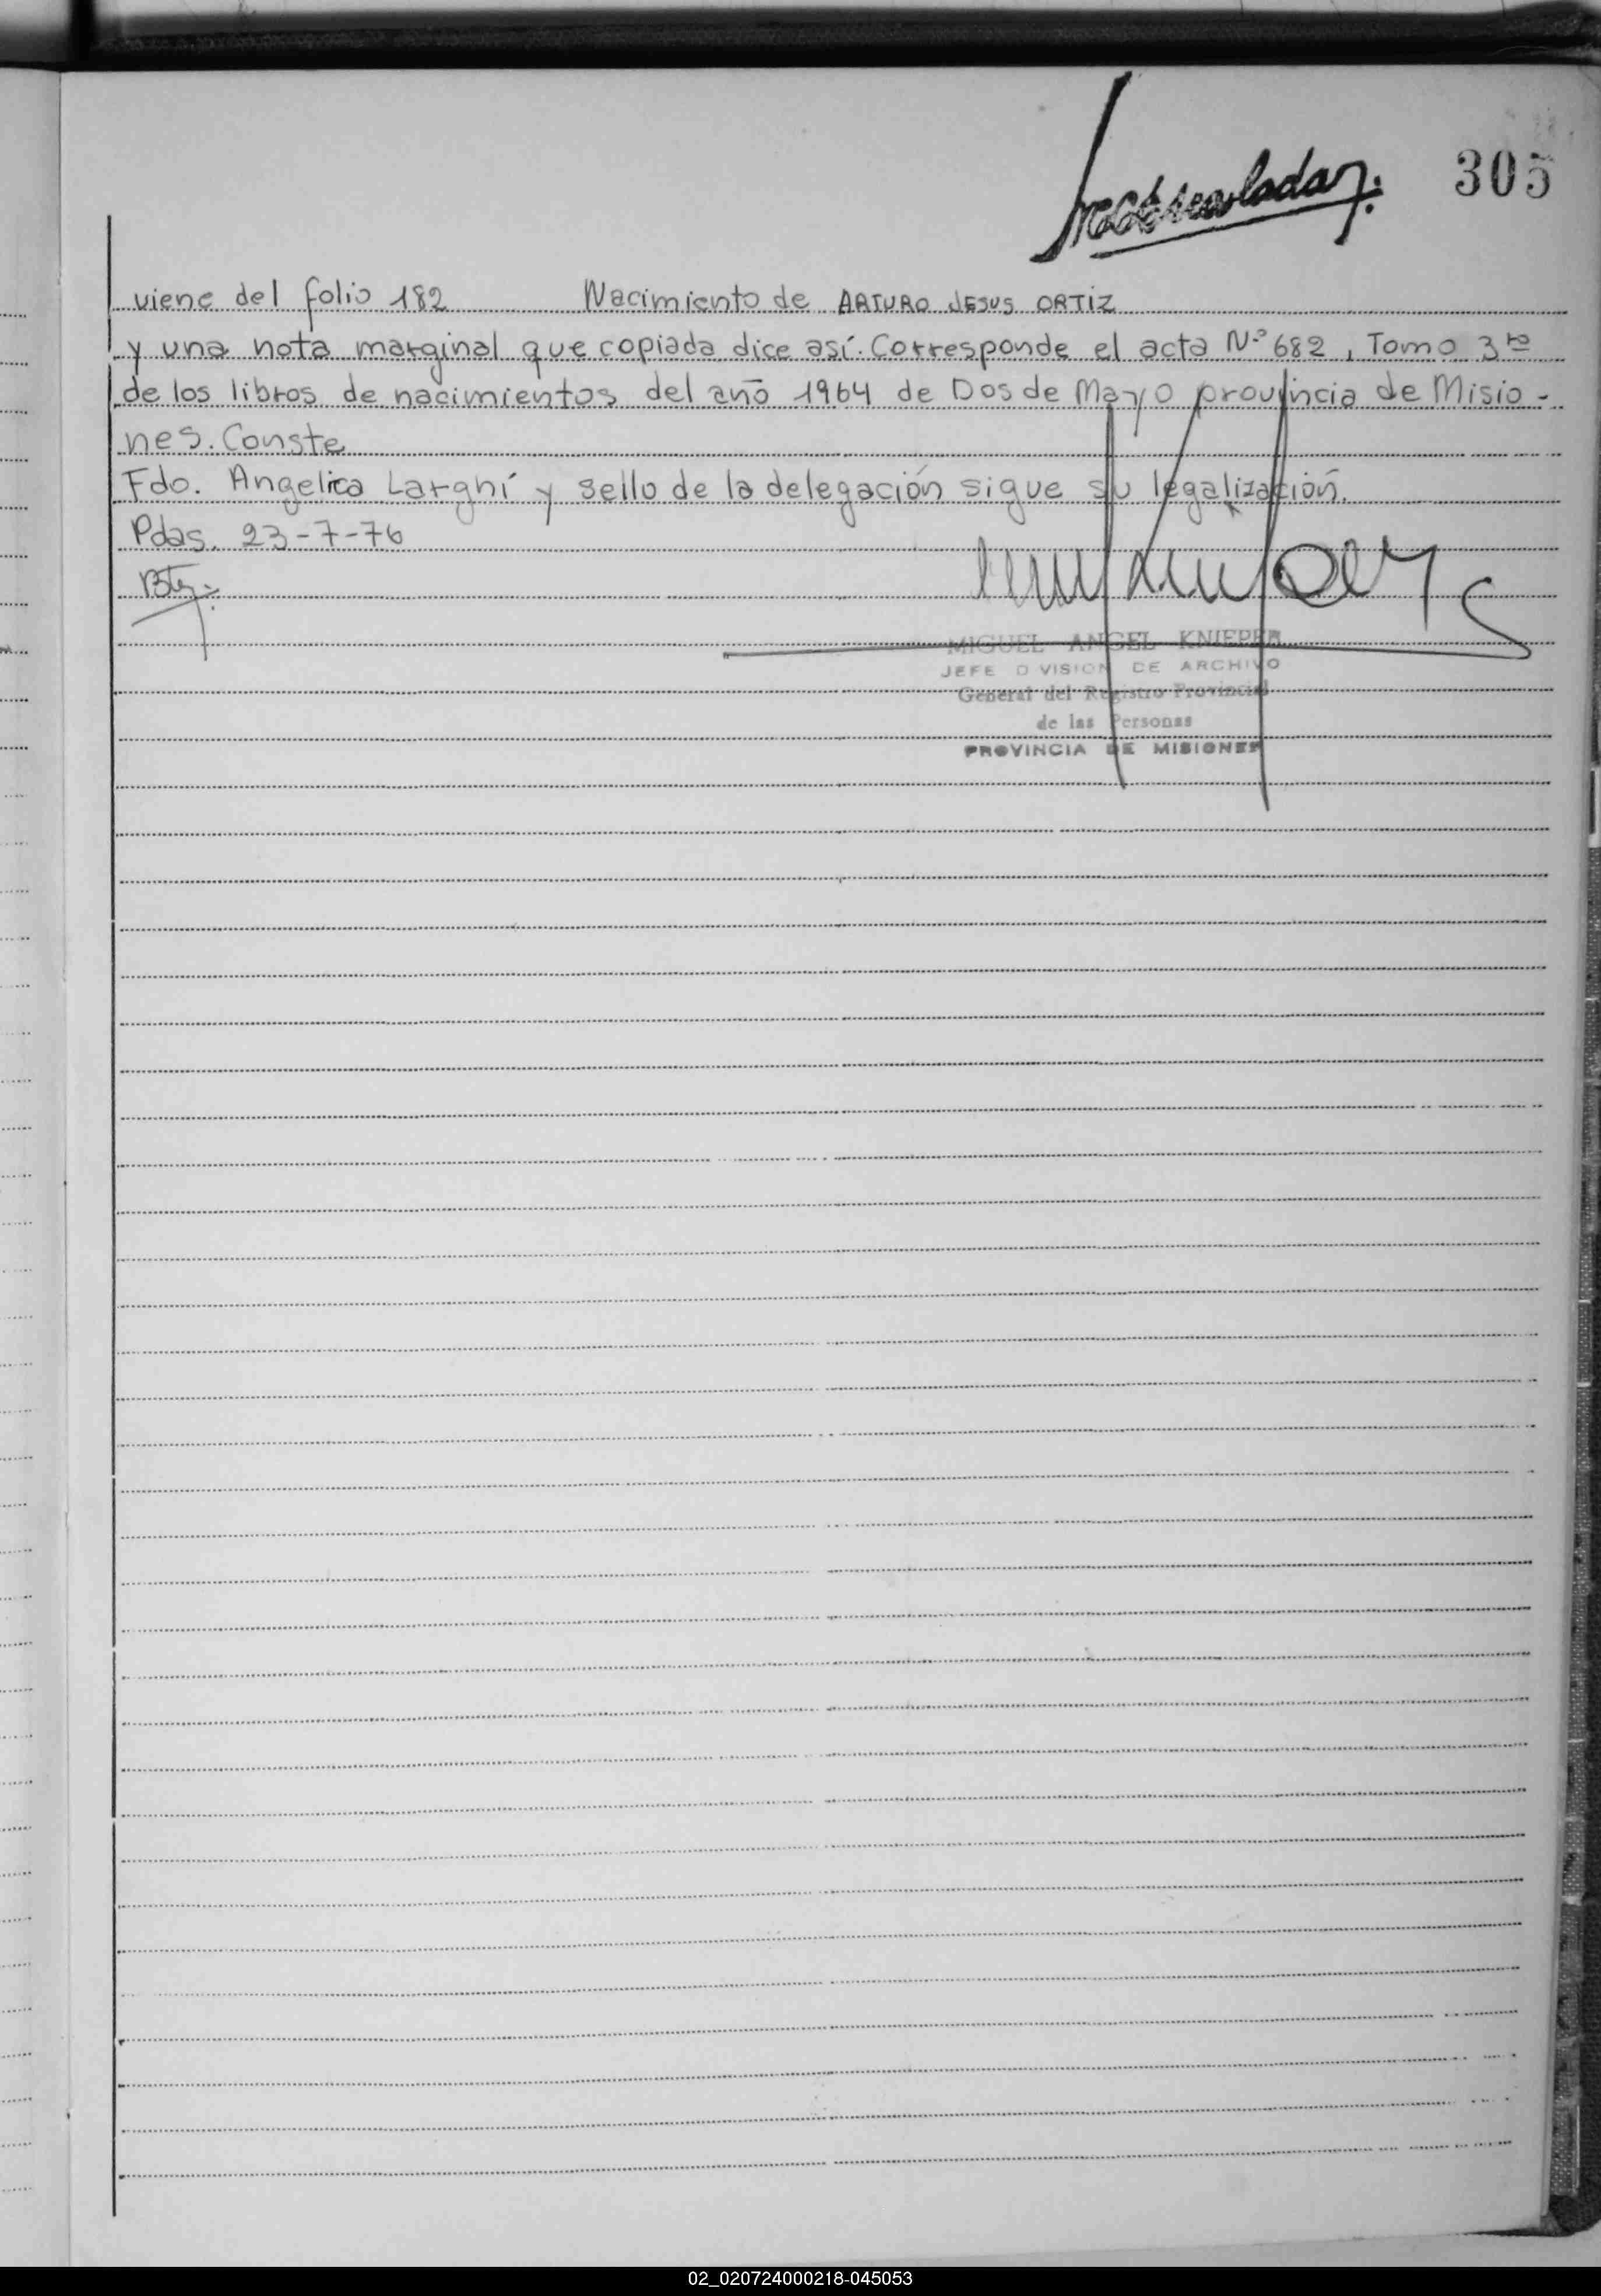 305
viene del folio 182 Nacimiento de ARTURO JESUS ORTIZ
y una nota marginal que copiada dice así. Corresponde el acta N.º 682, Tomo 3ro
de los libros de nacimientos del año 1964 de Dos de Mayo provincia de Misio-
nes. Conste
Fdo. Angelica Larghi y sello de la delegación sigue su legalización.
Pdas. 23-7-76
MIGUEL ANGEL KNIEPER
JEFE DIVISION DE ARCHIVO
General del Registro Provincial
de las Personas
PROVINCIA DE MISIONES
02_020724000218-045053